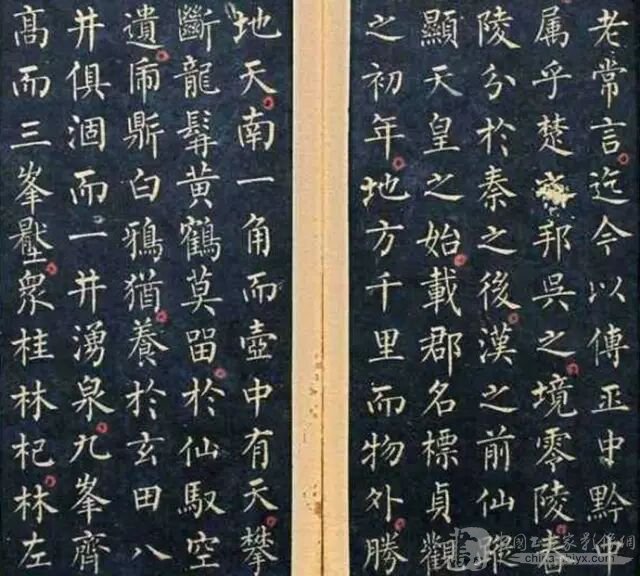 老常言迄今以傳巫中黔中
属乎楚邦吳之境零陵
陵分於秦之後漢之前仙
顯天皇之始載郡名標貞觀
之初年地方千里而物外勝
地天南一角而壺中有天攀
斷龍髯黃鶴莫留於仙馭空
遺虎鼎白鴉猶養於玄田八
井俱涸而一井湧泉九峯齊
高而三峯壓衆桂林杞林左